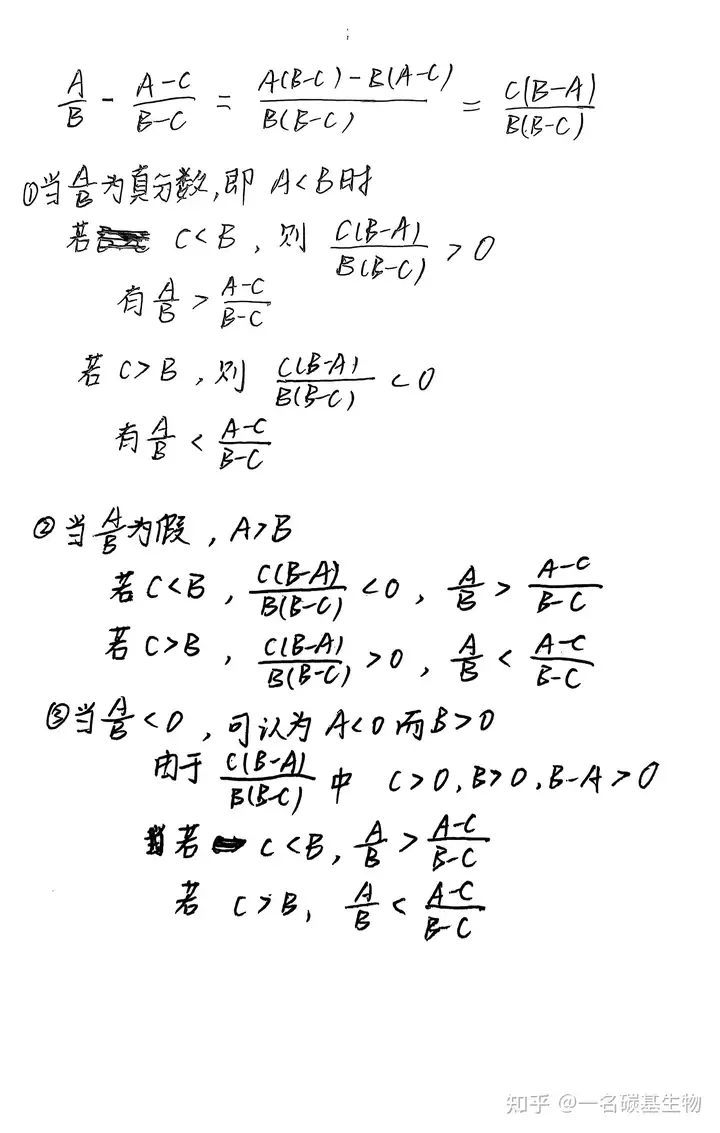 ;
A/B - (A-C)/(B-C) = (A(B-C)-B(A-C))/(B(B-C)) = (C(B-A))/(B(B-C))
①当A/B为真分数,即 A<B时
若 C<B, 则 (C(B-A))/(B(B-C)) > 0
有 A/B > (A-C)/(B-C)
若 C>B, 则 (C(B-A))/(B(B-C)) < 0
有 A/B < (A-C)/(B-C)
②当A/B为假, A>B
若C<B, (C(B-A))/(B(B-C)) < 0, A/B > (A-C)/(B-C)
若C>B, (C(B-A))/(B(B-C)) > 0, A/B < (A-C)/(B-C)
③当A/B<0, 可认为 A<0而B>0
由于 (C(B-A))/(B(B-C)) 中 C>0,B>0,B-A>0
若 C<B, A/B > (A-C)/(B-C)
若 C>B, A/B < (A-C)/(B-C)
知乎 @一名碳基生物